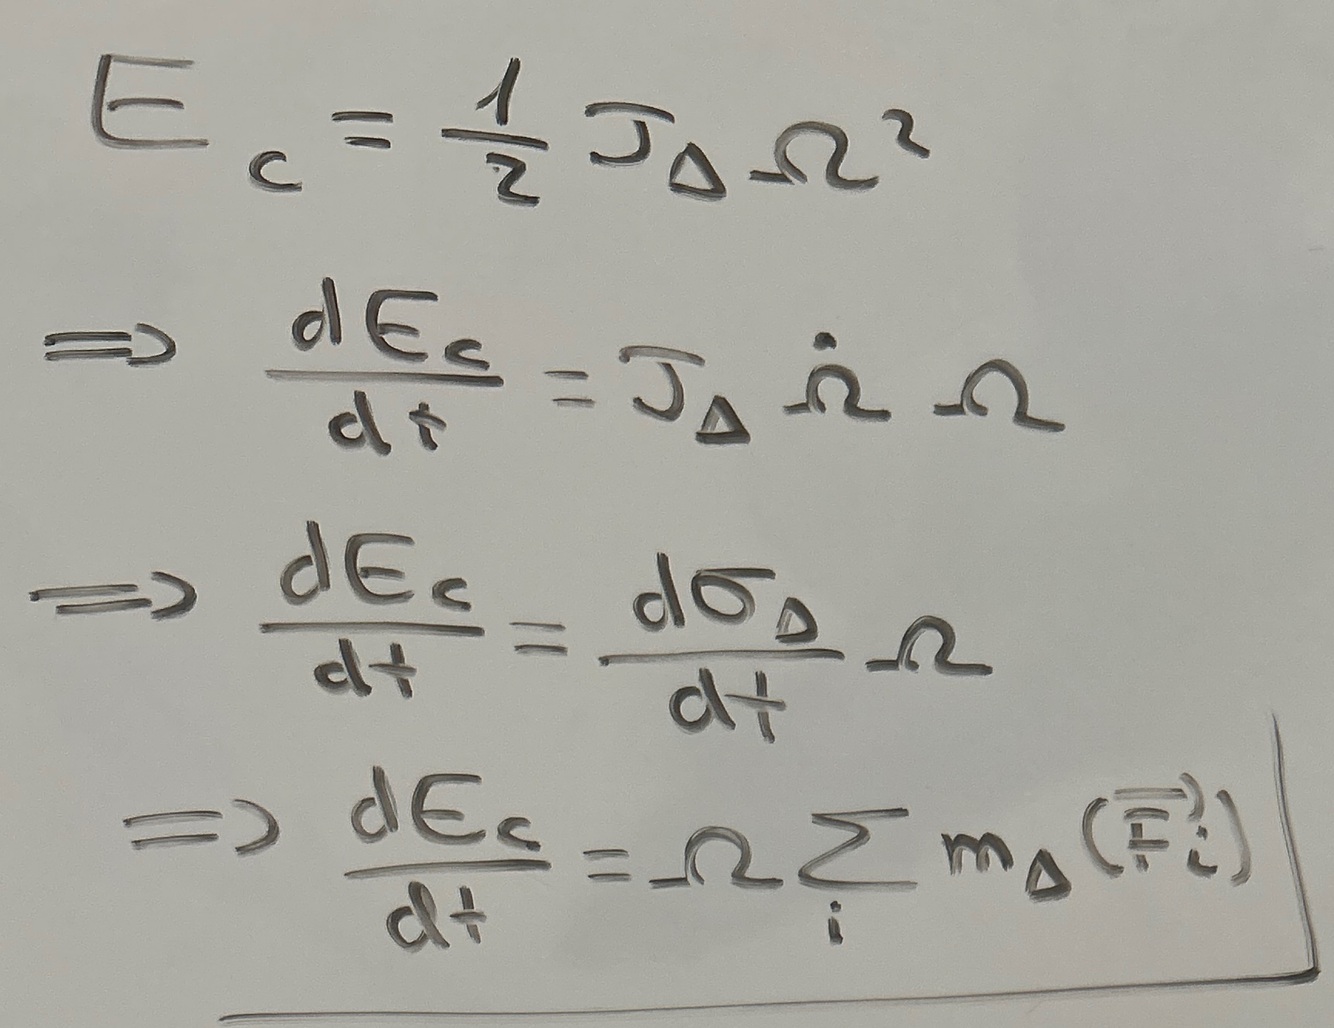 E_c = 1/2 J_Δ Ω²
⇒ dE_c/dt = J_Δ Ω̇ Ω
⇒ dE_c/dt = dσ_Δ/dt Ω
⇒ dE_c/dt = Ω Σ_i m_Δ(F⃗_i)